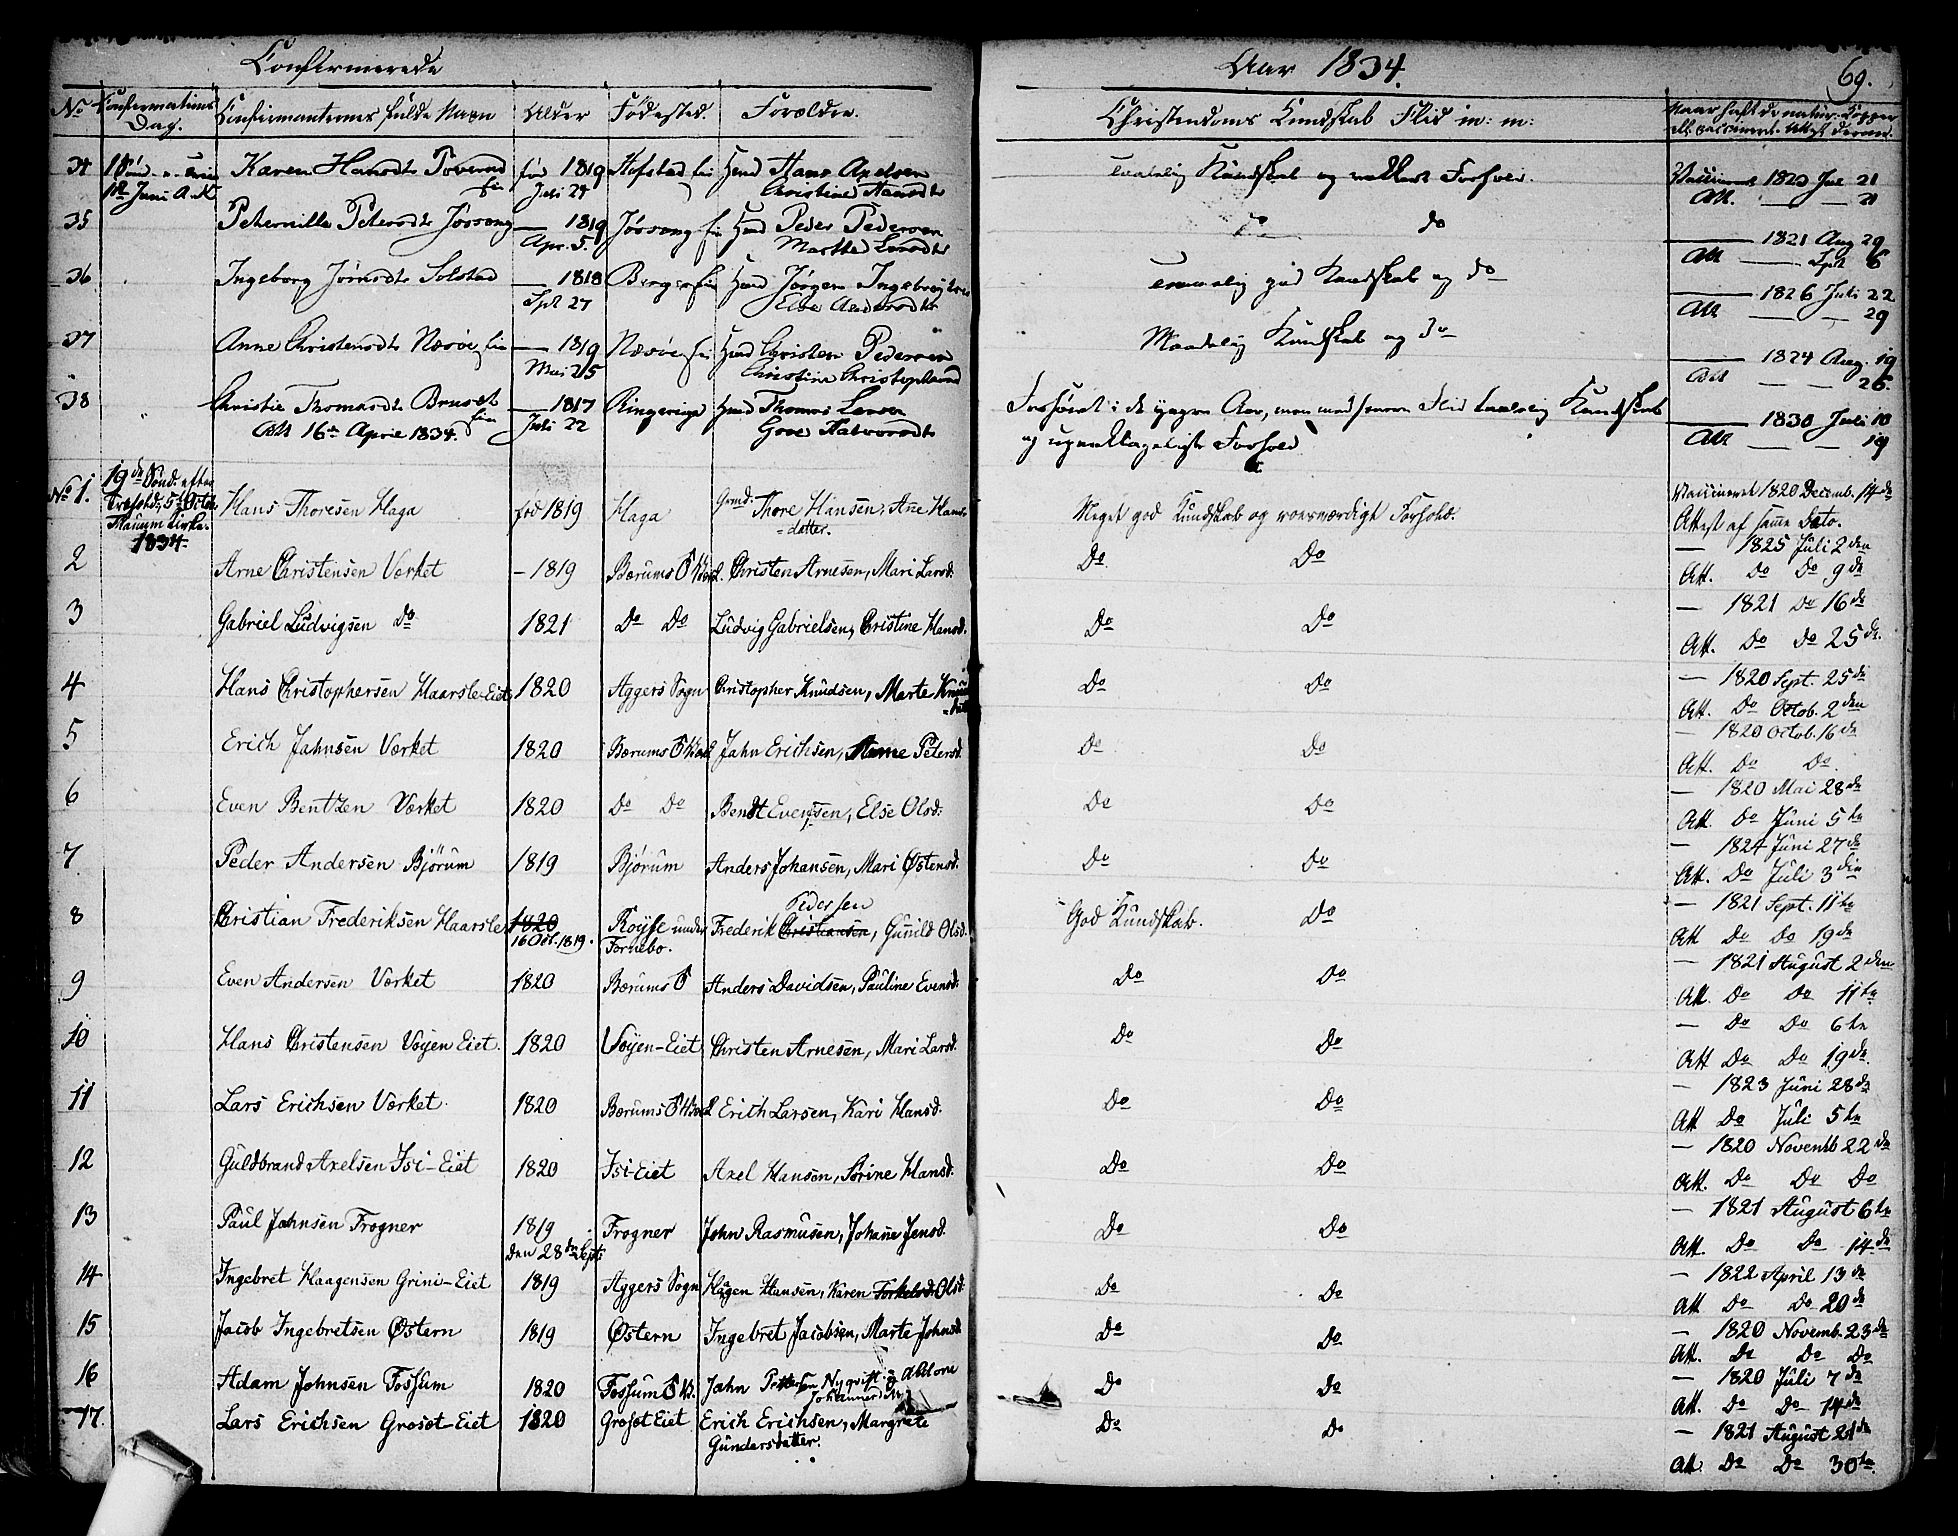 Confirmerede
Aar 1834.
69.
No Confirmations Dag. Confirmanternes fulde Navn Alder Fødested. Forældre. Christendoms Kundskab Flid m: m:
34 Karen Hansdt født 1819 Juli 24 Hofstad Hans Axelsen Christine Hansdtr Kundskab og Forhold. Vaccineret 1820 Jul 21
Att. — — 21
35 Peternille Petersdt Jossang — 1819 Apr. 5. Jossang Peder Pedersen Marthe Larsdtr do do — 1821 Aug 29
Att — Sept 6
36 Ingeborg Jörnsdt Solstad — 1818 Spt 27 Jörgen Else Andersdtr god Kundskab og do — 1826 Juli 22
Att — — 29
37 Anne Christensdt Næsöe — 1819 Mai 25 Næsöe Christen Pedersen Christine Maadelig Kundskab og do — 1824 Aug. 19
Att — — 26.
38 Christie Thomasdt Att 16de April 1834. — 1817 Juli 22 Ringerige Thomas Larsen Gore Halvorsdtr Forhold — 1830 Juli 10
Att — — 19
No 1. 19de Sönd. efter 5te Octob. Kirke. 1834. Hans Thoresen Haga fød 1819 Haga Grmd: Thore Hansen, Ane Hans=datter. Meget god Kundskab og roesværdigt Forhold. Vaccineret 1820 Decemb. 14de
Attest af samme Dato.
2 Arne Christensen Værket – 1819 Bærums Christen Arnesen, Mari Larsd: Do. Do — 1825 Juli 2den
Att. Do Do 9de
3 Gabriel Ludvigsen Do 1821 Do Do Ludvig Gabrielsen, Christine Hansd. Do Do — 1821 Do 16de
Att. Do Do 25de.
4 Hans Christophersen Haarsle-Eiet 1820 Aggers Sogn Christopher Knudsen, Marte Do Do — 1820 Sept. 25de
Att. Do Octob. 2den
5 Erich Jahnsen Værket 1820 Bærums Jahn Erichsen, Petersd. Do Do — 1820 Octob. 16de
Att. Do Do.
6 Even Bentzen Værket 1820 Do Do Bendt Evensen, Else Olsd: Do Do — 1820 Mai 28de
Att. Do Juni 5te
7 Peder Andersen Bjørum 1819 Bjørum Anders Johansen, Mari Østensd. Do Do — 1824 Juni 27de
Att. Do Juli 3die
8 Christian Frederiksen Haarsle 1820 16 Oct. 1819. Røyse under Fornebo. Frederik Christiansen Pedersen, Gunild Olsd. God Kundskab. Do — 1821 Sept. 11te
Att Do Do 19de
9 Even Andersen Værket 1820 Bærums Anders Davidsen, Pauline Evensd: Do Do — 1821 August 2den
Att. Do Do 11te
10 Hans Christensen Vøyen Eiet. 1820 Vøyen-Eiet Christen Arnesen, Mari Larsd. Do Do — Do Do 6te
Att Do Do 19de
11 Lars Erichsen Værket. 1820 Bærums Erich Larsen, Kari Hansd. Do Do — 1823 Juni 28de
Att Do Juli 5te
12 Guldbrand Axelsen Isi-Eiet 1820 Isi-Eiet Axel Hansen, Sørine Hansd. Do Do — 1820 Novemb 22de
Att. Do Do Do
13 Paul Jahnsen Frogner 1819 den 28de Sept: Frogner John Rasmusen, Johane Jensd. Do Do — 1821 August 6te
Att. Do Do 14de
14 Ingebret Haagensen Grini-Eiet 1819 Aggers Sogn Hagen Hansen, Karen Torkelsd. Olsd. Do Do — 1822 April 13de
Att Do Do 20de
15 Jacob Ingebretsen Østern 1819 Østern Ingebret Jacobsen, Marte Johnsd. Do Do — 1820 Novemb. 23de
Att. Do Do Do
16 Adam Johnsen Fossum 1820 Fossum Jahn Nyqvist og Do Do — 1820 Juli 7de
Att. Do Do 14de
17. Lars Erichsen Grosøt-Eiet 1820 Grosøt Eiet Erich Erichsen, Margrete Gundersdatter. Do Do — 1821 August 21de
Att. Do Do 30te